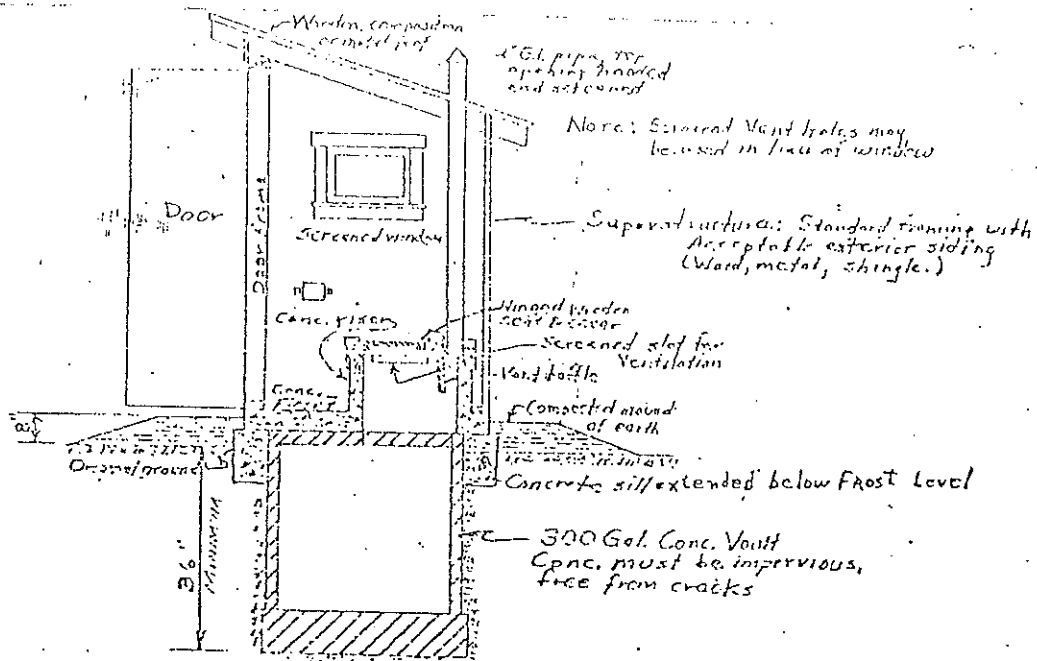 Wooden, composition
or metal roof
4" G.I. pipe, top
opening hooded
and screened
Note: Screened Vent holes may
be used in lieu of window
Door
Door frame
Screened window
Superstructure: Standard framing with
Acceptable exterior siding
(Wood, metal, shingle.)
Conc. riser
Hinged wooden
seat & cover
Screened slot for
Ventilation
Vent baffle
Conc.
Floor
Compacted mound
of earth
8"
Original ground
Concrete sill extended below Frost Level
36"
Minimum
300 Gal. Conc. Vault
Conc. must be impervious,
free from cracks